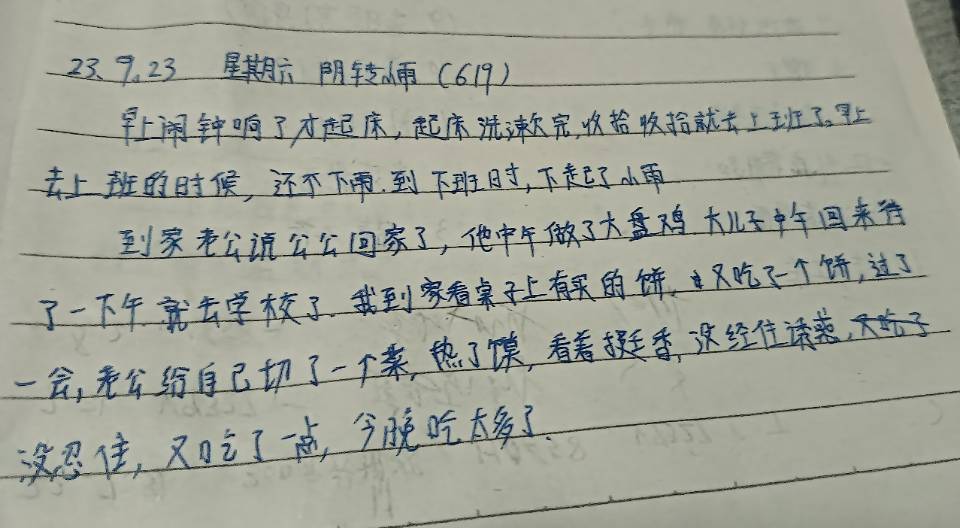 23.9.23 星期六 阴转小雨（619）
早上闹钟响了才起床，起床洗漱完，收拾收拾就去上班了。早上
去上班的时候，还不下雨.到下班时，下起了小雨
到家老公说公公回家了，他中午做了大盘鸡 大儿子中午回来待
了一下午 就去学校了.我到家看桌子上有买的饼，又吃了一个饼，过了
一会，老公给自己切了一个菜，热了馍，看着挺香，没经住诱惑，又吃了
没忍住，又吃了一点，今晚吃太多了.